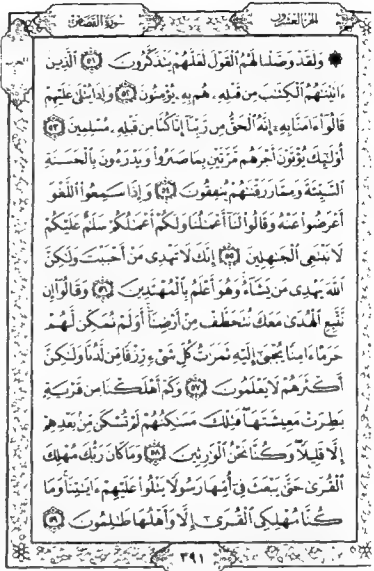 الجزء العشرون
سورة القصص
۞ وَلَقَدْ وَصَّلْنَا لَهُمُ ٱلْقَوْلَ لَعَلَّهُمْ يَتَذَكَّرُونَ ٥١ ٱلَّذِينَ
ءَاتَيْنَٰهُمُ ٱلْكِتَٰبَ مِن قَبْلِهِۦ هُم بِهِۦ يُؤْمِنُونَ ٥٢ وَإِذَا يُتْلَىٰ عَلَيْهِمْ
قَالُوٓا۟ ءَامَنَّا بِهِۦٓ إِنَّهُ ٱلْحَقُّ مِن رَّبِّنَآ إِنَّا كُنَّا مِن قَبْلِهِۦ مُسْلِمِينَ ٥٣
أُو۟لَٰٓئِكَ يُؤْتَوْنَ أَجْرَهُم مَّرَّتَيْنِ بِمَا صَبَرُوا۟ وَيَدْرَءُونَ بِٱلْحَسَنَةِ
ٱلسَّيِّئَةَ وَمِمَّا رَزَقْنَٰهُمْ يُنفِقُونَ ٥٤ وَإِذَا سَمِعُوا۟ ٱللَّغْوَ
أَعْرَضُوا۟ عَنْهُ وَقَالُوا۟ لَنَآ أَعْمَٰلُنَا وَلَكُمْ أَعْمَٰلُكُمْ سَلَٰمٌ عَلَيْكُمْ
لَا نَبْتَغِى ٱلْجَٰهِلِينَ ٥٥ إِنَّكَ لَا تَهْدِى مَنْ أَحْبَبْتَ وَلَٰكِنَّ
ٱللَّهَ يَهْدِى مَن يَشَآءُ وَهُوَ أَعْلَمُ بِٱلْمُهْتَدِينَ ٥٦ وَقَالُوٓا۟ إِن
نَّتَّبِعِ ٱلْهُدَىٰ مَعَكَ نُتَخَطَّفْ مِنْ أَرْضِنَآ أَوَلَمْ نُمَكِّن لَّهُمْ
حَرَمًا ءَامِنًا يُجْبَىٰٓ إِلَيْهِ ثَمَرَٰتُ كُلِّ شَىْءٍ رِّزْقًا مِّن لَّدُنَّا وَلَٰكِنَّ
أَكْثَرَهُمْ لَا يَعْلَمُونَ ٥٧ وَكَمْ أَهْلَكْنَا مِن قَرْيَةٍۭ
بَطِرَتْ مَعِيشَتَهَا فَتِلْكَ مَسَٰكِنُهُمْ لَمْ تُسْكَن مِّنۢ بَعْدِهِمْ
إِلَّا قَلِيلًا وَكُنَّا نَحْنُ ٱلْوَٰرِثِينَ ٥٨ وَمَا كَانَ رَبُّكَ مُهْلِكَ
ٱلْقُرَىٰ حَتَّىٰ يَبْعَثَ فِىٓ أُمِّهَا رَسُولًا يَتْلُوا۟ عَلَيْهِمْ ءَايَٰتِنَا وَمَا
كُنَّا مُهْلِكِى ٱلْقُرَىٰٓ إِلَّا وَأَهْلُهَا ظَٰلِمُونَ ٥٩
٣٩١